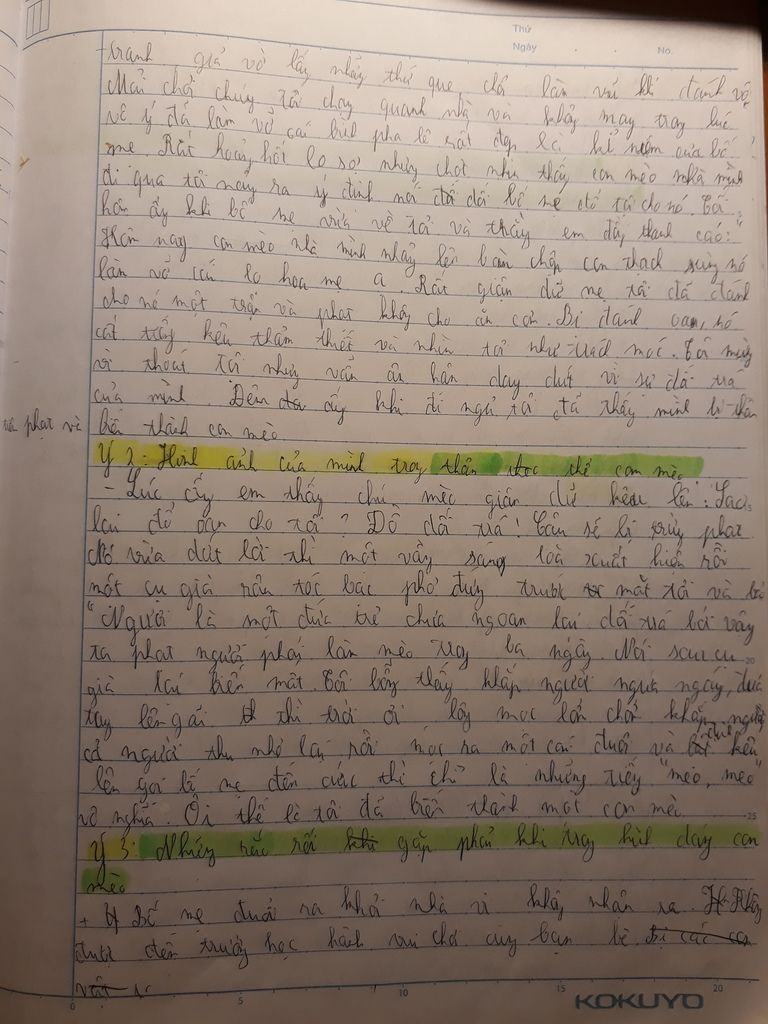 Thứ
Ngày No.
tranh giả vờ lấy nhảy thứ que, chổi làm vũ khí đánh võ
Mải chơi chúng tôi chạy quanh nhà và không may trong lúc
vô ý đã làm vỡ cái bình pha lê rất đẹp là kỉ niệm của bố
mẹ. Rất hoảng hốt lo sợ nhưng chợt nhìn thấy con mèo nhà mình
đi qua tôi nảy ra ý định nói dối bố mẹ đổ tội cho nó. Tối
hôm ấy khi bố mẹ vừa về tôi và thằng em đẩy thanh cáo: "
Hôm nay con mèo nhà mình nhảy lên bàn chộp con thạch sùng nó
làn vỡ cái lọ hoa mẹ ạ. Rất giận dữ mẹ tôi đã đánh
cho nó một trận và phạt không cho ăn cơm. Bị đánh oan, nó
cất tiếng kêu thảm thiết và nhìn tôi như trách móc. Tôi mừng
vì thoát tội nhưng vẫn ân hận day dứt vì sự dối trá
của mình. Đêm ấy khi đi ngủ tôi đã thấy mình bị thần
phạt và biến thành con mèo.
Ý 2: Hình ảnh của mình trong thân thể con mèo
- Lúc ấy em thấy chú mèo giận dữ kêu lên: Sao
lại đổ oan cho tôi? Đồ dối trá! Cậu sẽ bị trừng phạt
Nó vừa dứt lời thì một vầng sáng loà xuất hiện rồi
một cụ già râu tóc bạc phơ đứng trước mắt tôi và bảo
"Ngươi là một đứa trẻ chưa ngoan lại dối trá bởi vậy
ta phạt ngươi phải làm mèo trong ba ngày. Nói sau cụ
già kai biến mất. Tôi bỗng thấy khắp người ngứa ngáy, đưa
tay lên gãi thì trời ơi lông mọc lởm chởm khắp người
cả người thu nhỏ lại rồi mọc ra một cái đuôi và kêu
lên gọi bố mẹ đến cứu thì chỉ là những tiếng "meo, meo"
vô nghĩa. Ôi thế là tôi đã biến thành một con mèo.
Ý 3: Những rắc rối gặp phải khi trong hình dáng con
mèo
+ Bố mẹ đuổi ra khỏi nhà vì không nhận ra. Không
được đến trường học hành vui chơi cùng bạn bè
0 5 10 15 20
20
25
KOKUYO